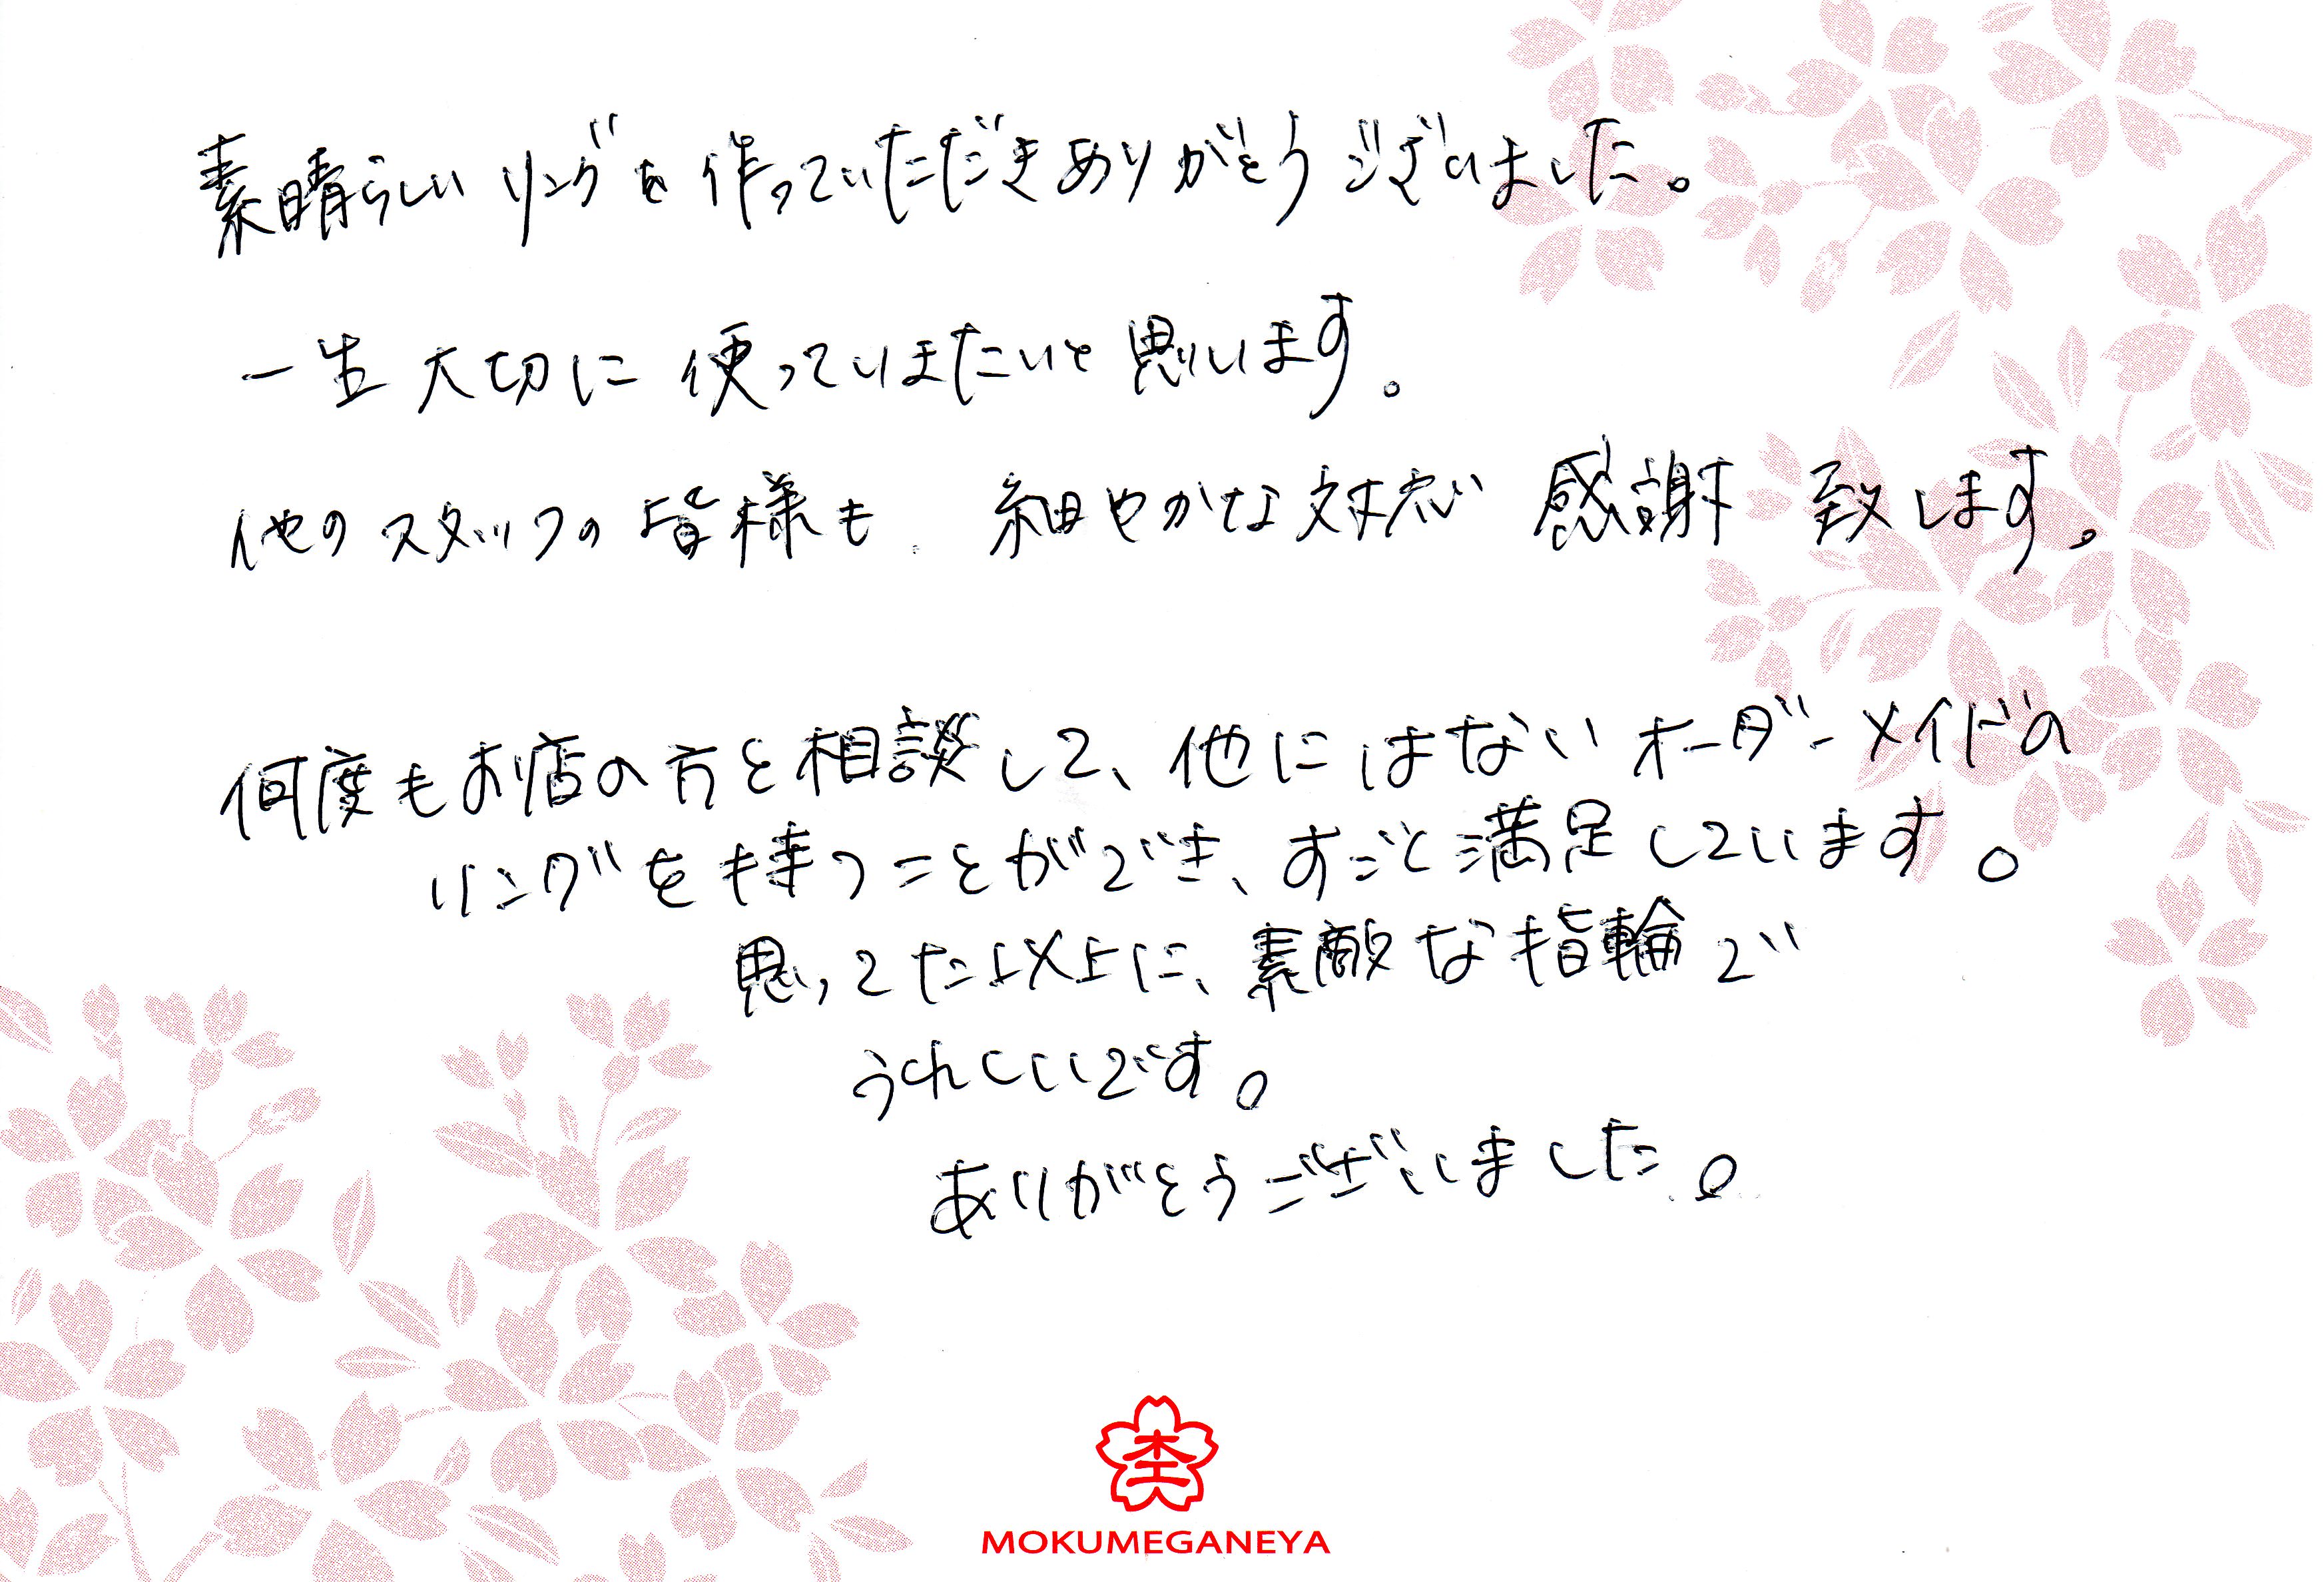 素晴らしいリングを作っていただきありがとうございました。
一生大切に使っていきたいと思います。
他のスタッフの皆様も、細やかな対応 感謝致します。
何度もお店の方と相談して、他にはないオーダーメイドの
リングを持つことができ、すごく満足しています。
思ってた以上に、素敵な指輪で
うれしいです。
ありがとうございました。
MOKUMEGANEYA